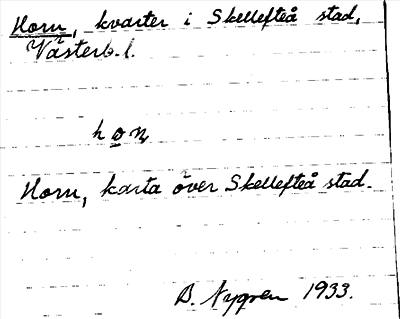 Horn, kvarter i Skellefteå stad,
Västerb. l.
ho̲ṇ
Horn, karta över Skellefteå stad.
B. Nygren 1933.